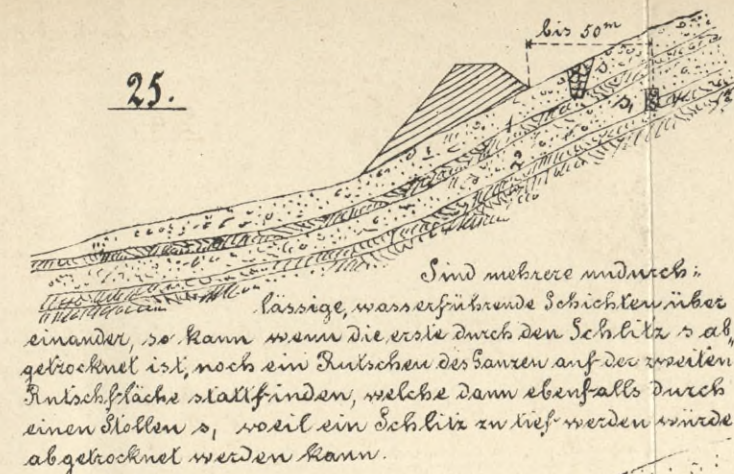 bis 50m
25.
s,
1
2
Sind mehrere undurch=
lässige, wasserführende Schichten über
einander, so kann wenn die erste durch den Schlitz s ab„
getrocknet ist, noch ein Rutschen des Ganzen auf der zweiten
Rutschfläche stattfinden, welche dann ebenfalls durch
einen Stollen s, weil ein Schlitz zu tief werden würde
abgetrocknet werden kann.